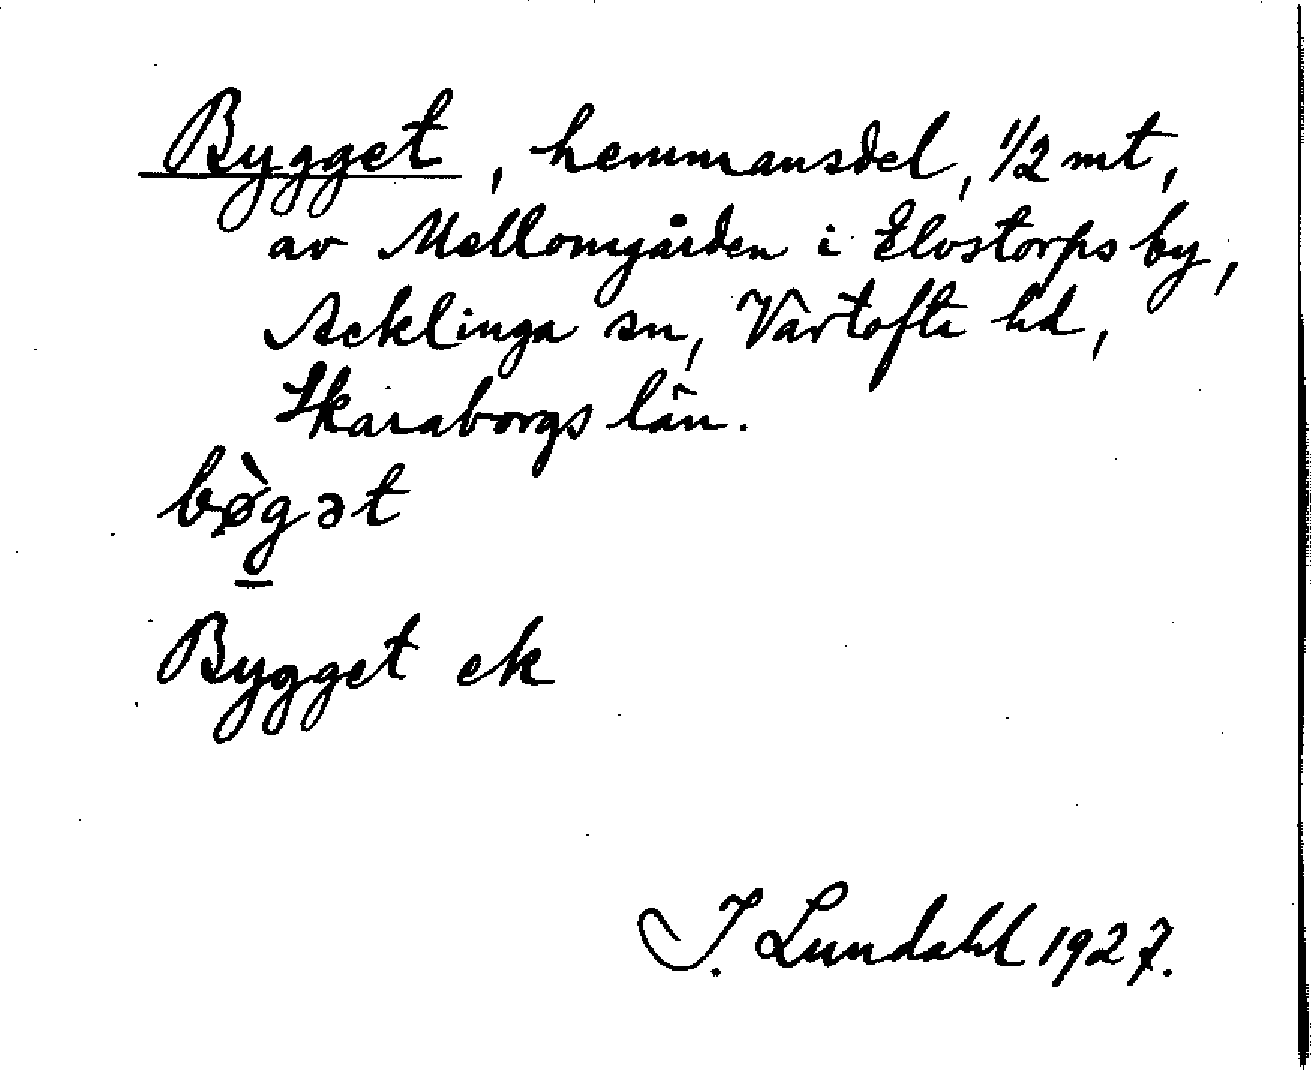 Bygget, hemmansdel, 1/2 mt,
av Mellomgården i Elvstorps by,
Acklinga sn, Vartofte hd,
Skaraborgs län.
bø̀g̲ət
Bygget ek
I. Lundahl 1927.